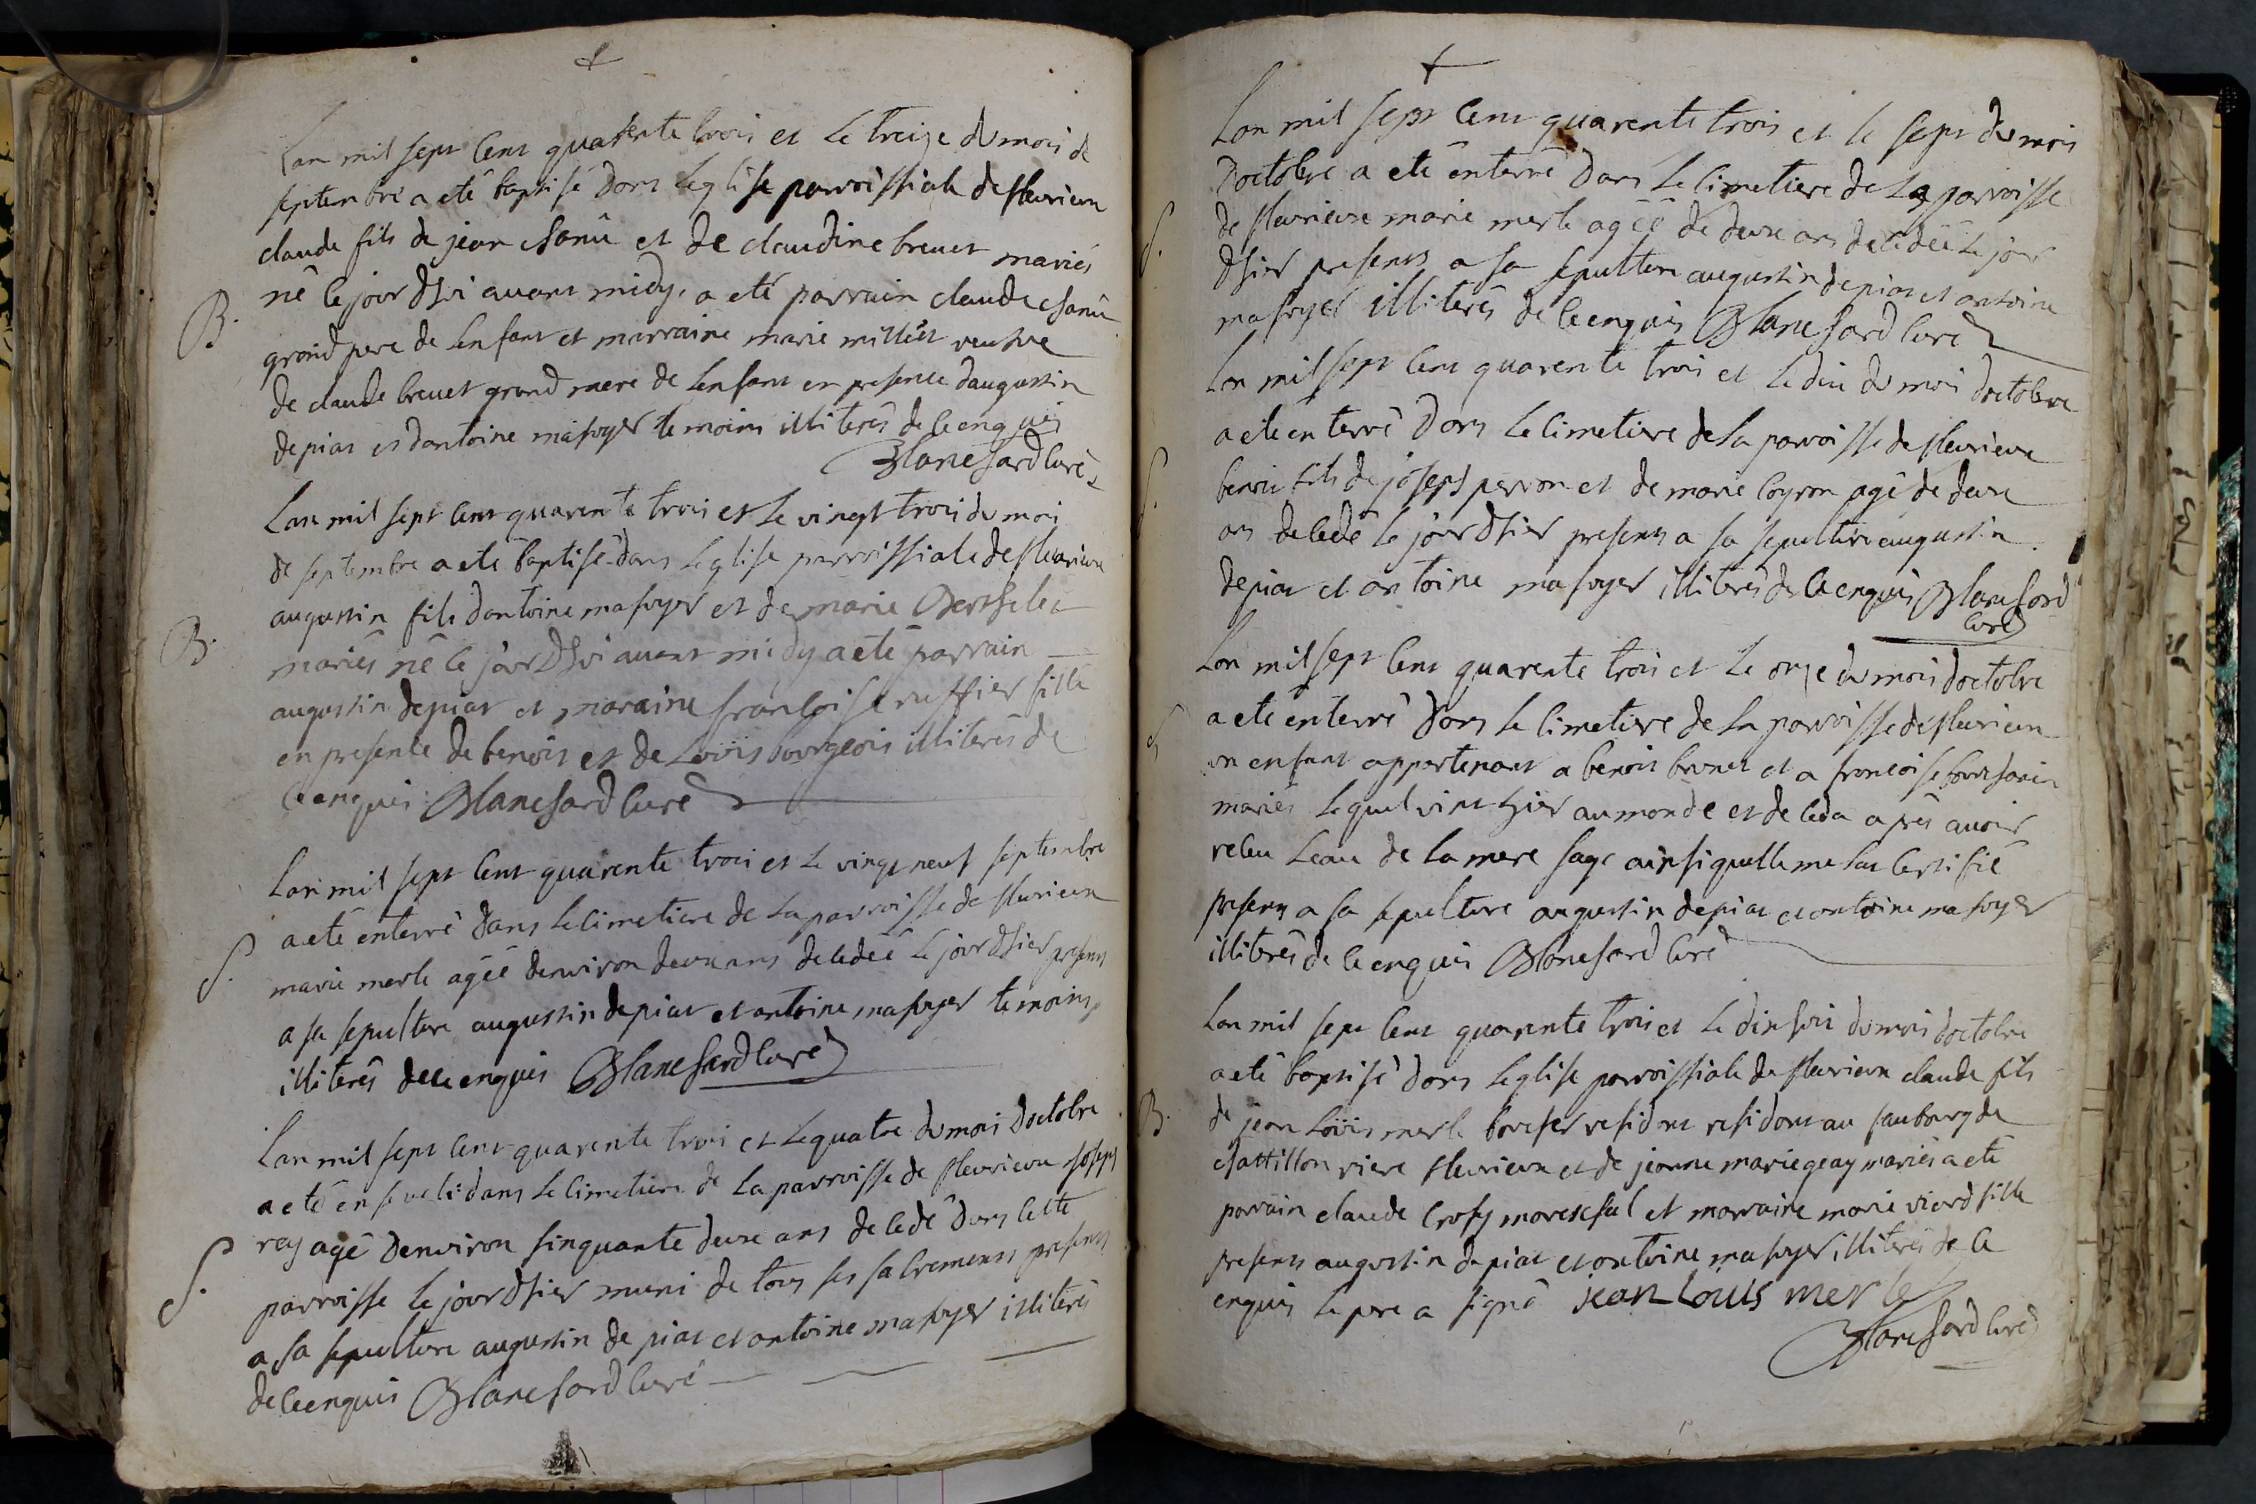 Lan mil sept cent quarente trois et le treize du mois de
septembre a eté baptisé dans leglise parroissiale de fleurieux
claude fils de jean chanû et de claudine brevet mariés
né le jour dhui avant midy, a eté parrain claude chanû
grand pere de lenfant et marraine marie millét veusve
de claude brevet grand mere de lenfant en presence daugustin
depias et dantoine masoyer temoins illiterés de ce enquis
Blanchard curé
B.
Lan mil sept cent quarente trois et le vingt trois du mois
de septembre a eté baptisé dans leglise parroissiale de fleurieux
augustin fils dantoine masoyer et de marie Berthelet
mariés né le jour dhui avant midy a eté parrain
augustin depias et maraine francoise ruffier fille
en presence de benois et de Loüis bourgeois illiterés de
ce enquis Blanchard curé
B.
Lan mil sept cent quarente trois et le vingt neuf septembre
a eté enterré dans le cimetiere de la parroisse de fleurieux
marie merle agéé denviron deux ans decedéé le jour dhier presents
a sa sepulture augustin depias et antoine masoyer temoins
illiterés de ce enquis Blanchard curé
S.
Lan mil sept cent quarente trois et le quatre du mois doctobre
a eté enseveli dans le cimetiere de la parroisse de fleurieux joseph
rey agé denviron sinquante deux ans decedé dans cette
parroisse le jour dhier muni de tous ses sacrements presents
a sa sepulture augustin de pias et antoine masoyer illiterés
de ce enquis Blanchard curé
S.
Lan mil sept cent quarente trois et le sept du mois
doctobre a eté enterré dans le cimetiere de la parroisse
de fleurieux marie merle agéé de deux ans decedéé le jour
dhier presents a sa sepulture augustin depias et antoine
masoyer illiterés de ce enquis Blanchard curé
S.
Lan mil sept cent quarente trois et le dix du mois doctobre
a eté enterré dans le cimetiere de la parroisse de fleurieux
benois fils de joseph perron et de marie Coyron agé de deux
ans decedé le jour dhier presents a sa sepulture augustin
depias et antoine masoyer illiterés de ce enquis Blanchard
curé
S.
Lan mil sept cent quarente trois et le onze du mois doctobre
a eté enterré dans le cimetiere de la parroisse de fleurieux
un enfant appartenant a benois brunet et a francoise
mariés lequel vint hier au monde et deceda aprés avoir
receu leau de la mere sage ainsi quelle me la certifié
presents a sa sepulture augustin depias et antoine masoyer
illiterés de ce enquis Blanchard curé
S
Lan mil sept cent quarente trois et le dix huit du mois doctobre
a eté baptisé dans leglise parroissiale de fleurieux claude fils
de jean Loüis merle bocher residant residant au faubourg de
chattillon riere fleurieux et de jeanne marie geay mariés a eté
parrain claude marechal et marraine marie viard fille
presents augustin depias et antoine masoyer illiterés de ce
enquis le pere a signé jean Louis merle
Blanchard curé
B.